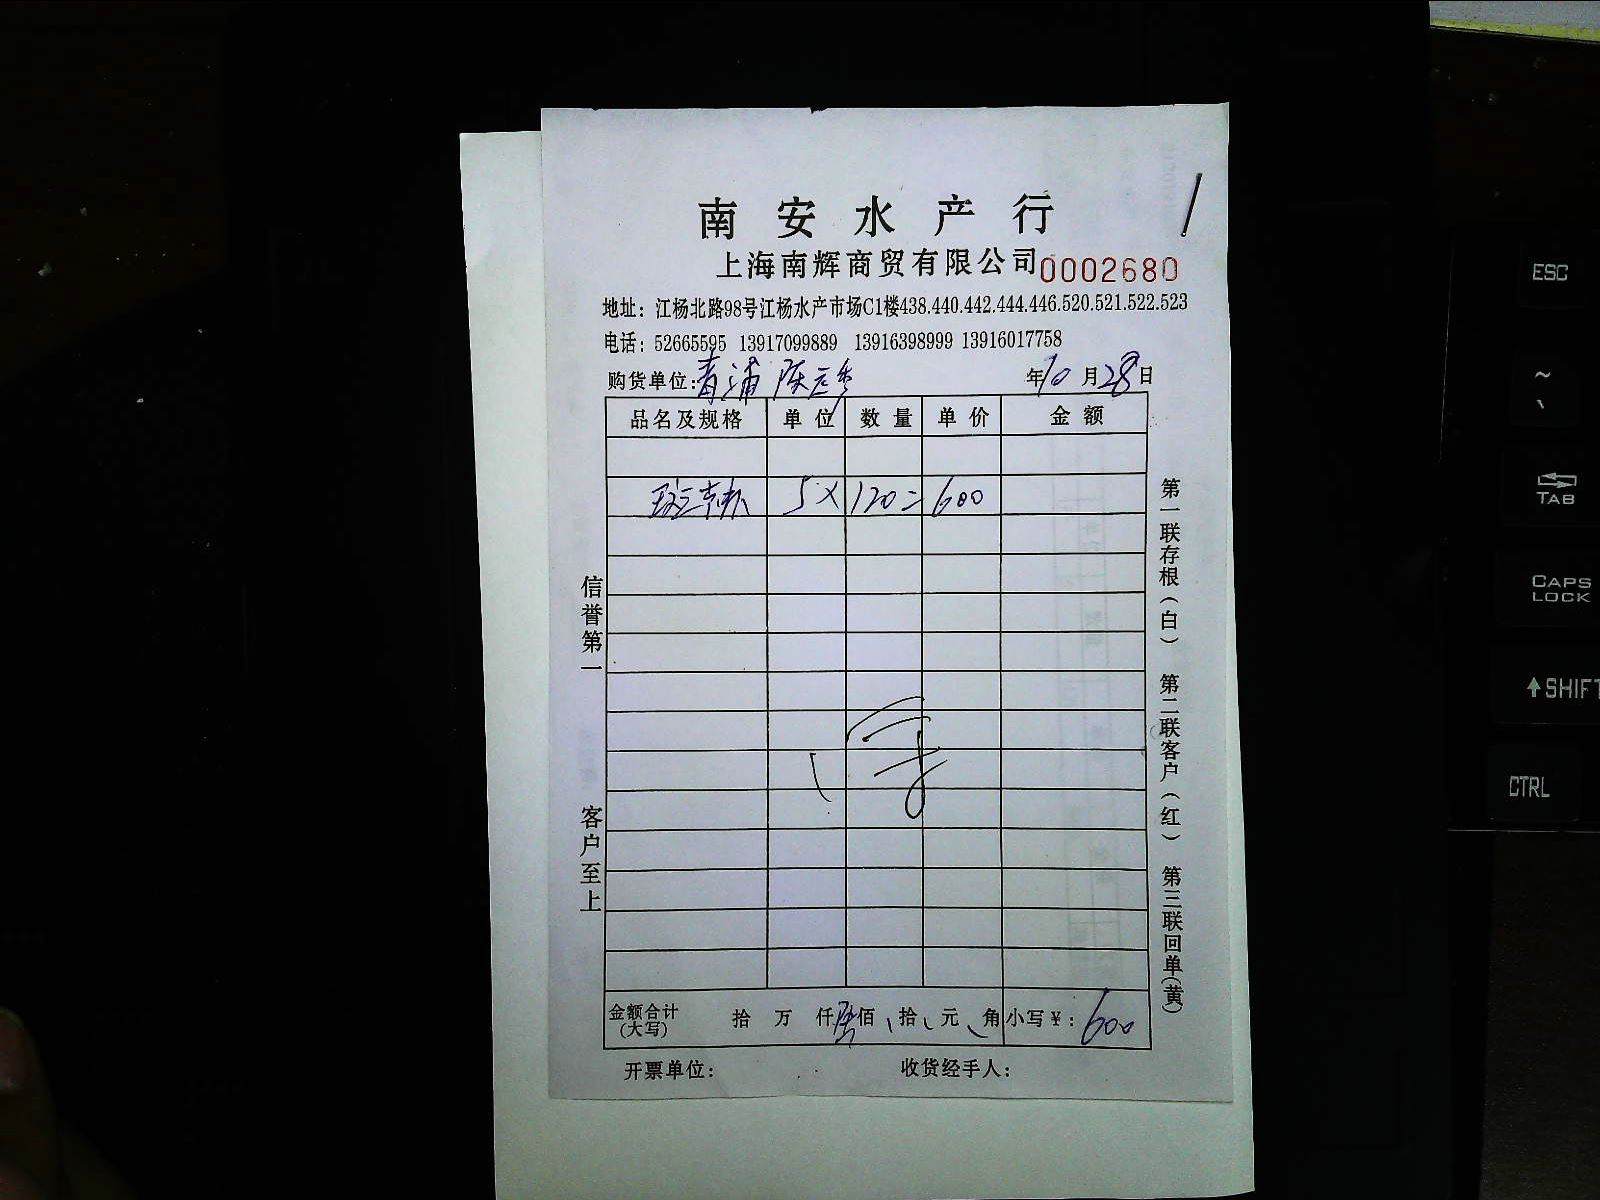 南安水产行
上海南辉商贸有限公司 0002680
地址：江杨北路98号江杨水产市场C1楼438.440.442.444.446.520.521.522.523
电话：52665595 13917099889 13916398999 13916017758
购货单位：青浦 陈 年10月28日
品名及规格 单位 数量 单价 金额
5×120=600
信誉第一 客户至上
第一联存根（白） 第二联客户（红） 第三联回单（黄）
金额合计（大写） 拾 万 仟陆佰 拾 元 角 小写￥：600
开票单位： 收货经手人：
ESC
~
、
TAB
CAPS LOCK
SHIFT
CTRL